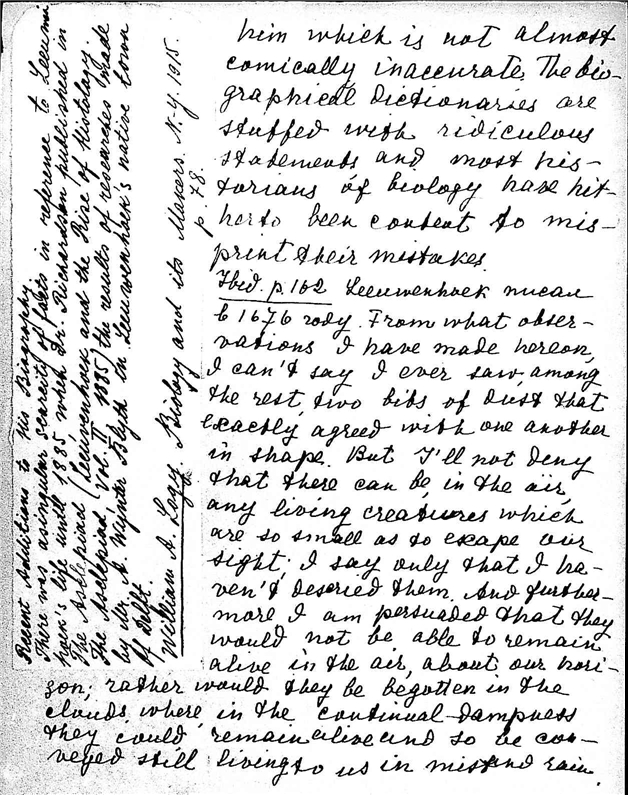 him which is not almost
comically inaccurate. The bio-
graphical dictionaries are
stuffed with ridiculous
statements and most his-
torians of biology have hit-
herto been content to mis-
print their mistakes.
Ibid. p. 162 Leeuwenhoek писал
в 1676 году. From what obser-
vations I have made hereon,
I can't say I ever saw, among
the rest, two bits of dust that
exactly agreed with one another
in shape. But I'll not deny
that there can be, in the air,
any living creatures which
are so small as to excape our
sight; I say only that I ha-
ven't descried them. And further-
more I am persuaded that they
would not be able to remain
alive in the air, about our hori-
zon; rather would they be begotten in the
clouds, where, in the continual dampness
they could remain alive and so be con-
veyed still living to us in mist and rain.
Recent Additions to his Biography.
There was a singular scarcity of facts in reference to Leeuwen
hoek's life until 1885 when Dr. Richardson published in
The Asclepiad (Leeuwenhoek and the Rise of Histology.
The Asclepiad, vol. II, 1885) the results of researches made
by Mr. A. Wynter Blyth in Leeuwenhoek's native town
of Delft.
William A. Locy. Biology and its Makers. N.-Y. 1915.
p 78.